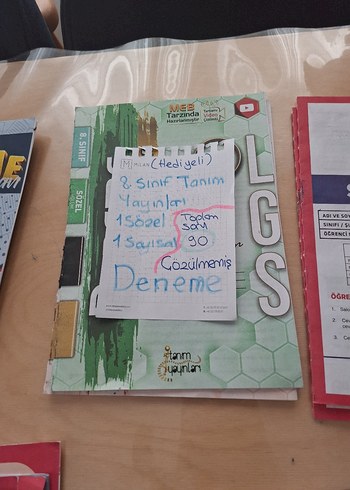 MEB
Tarzında
Hazırlanmıştır
8. SINIF
SÖZEL
LGS
(Hediyeli)
8. Sınıf Tanım
Yayınları
1 Sözel
1 Sayısal
Toplam
Soru
90
Çözülmemiş
Deneme
tanım
yayınları
ADI VE SOY
SINIFI / ŞU
ÖĞRENCİ
ÖĞRE
1.
2.
3.